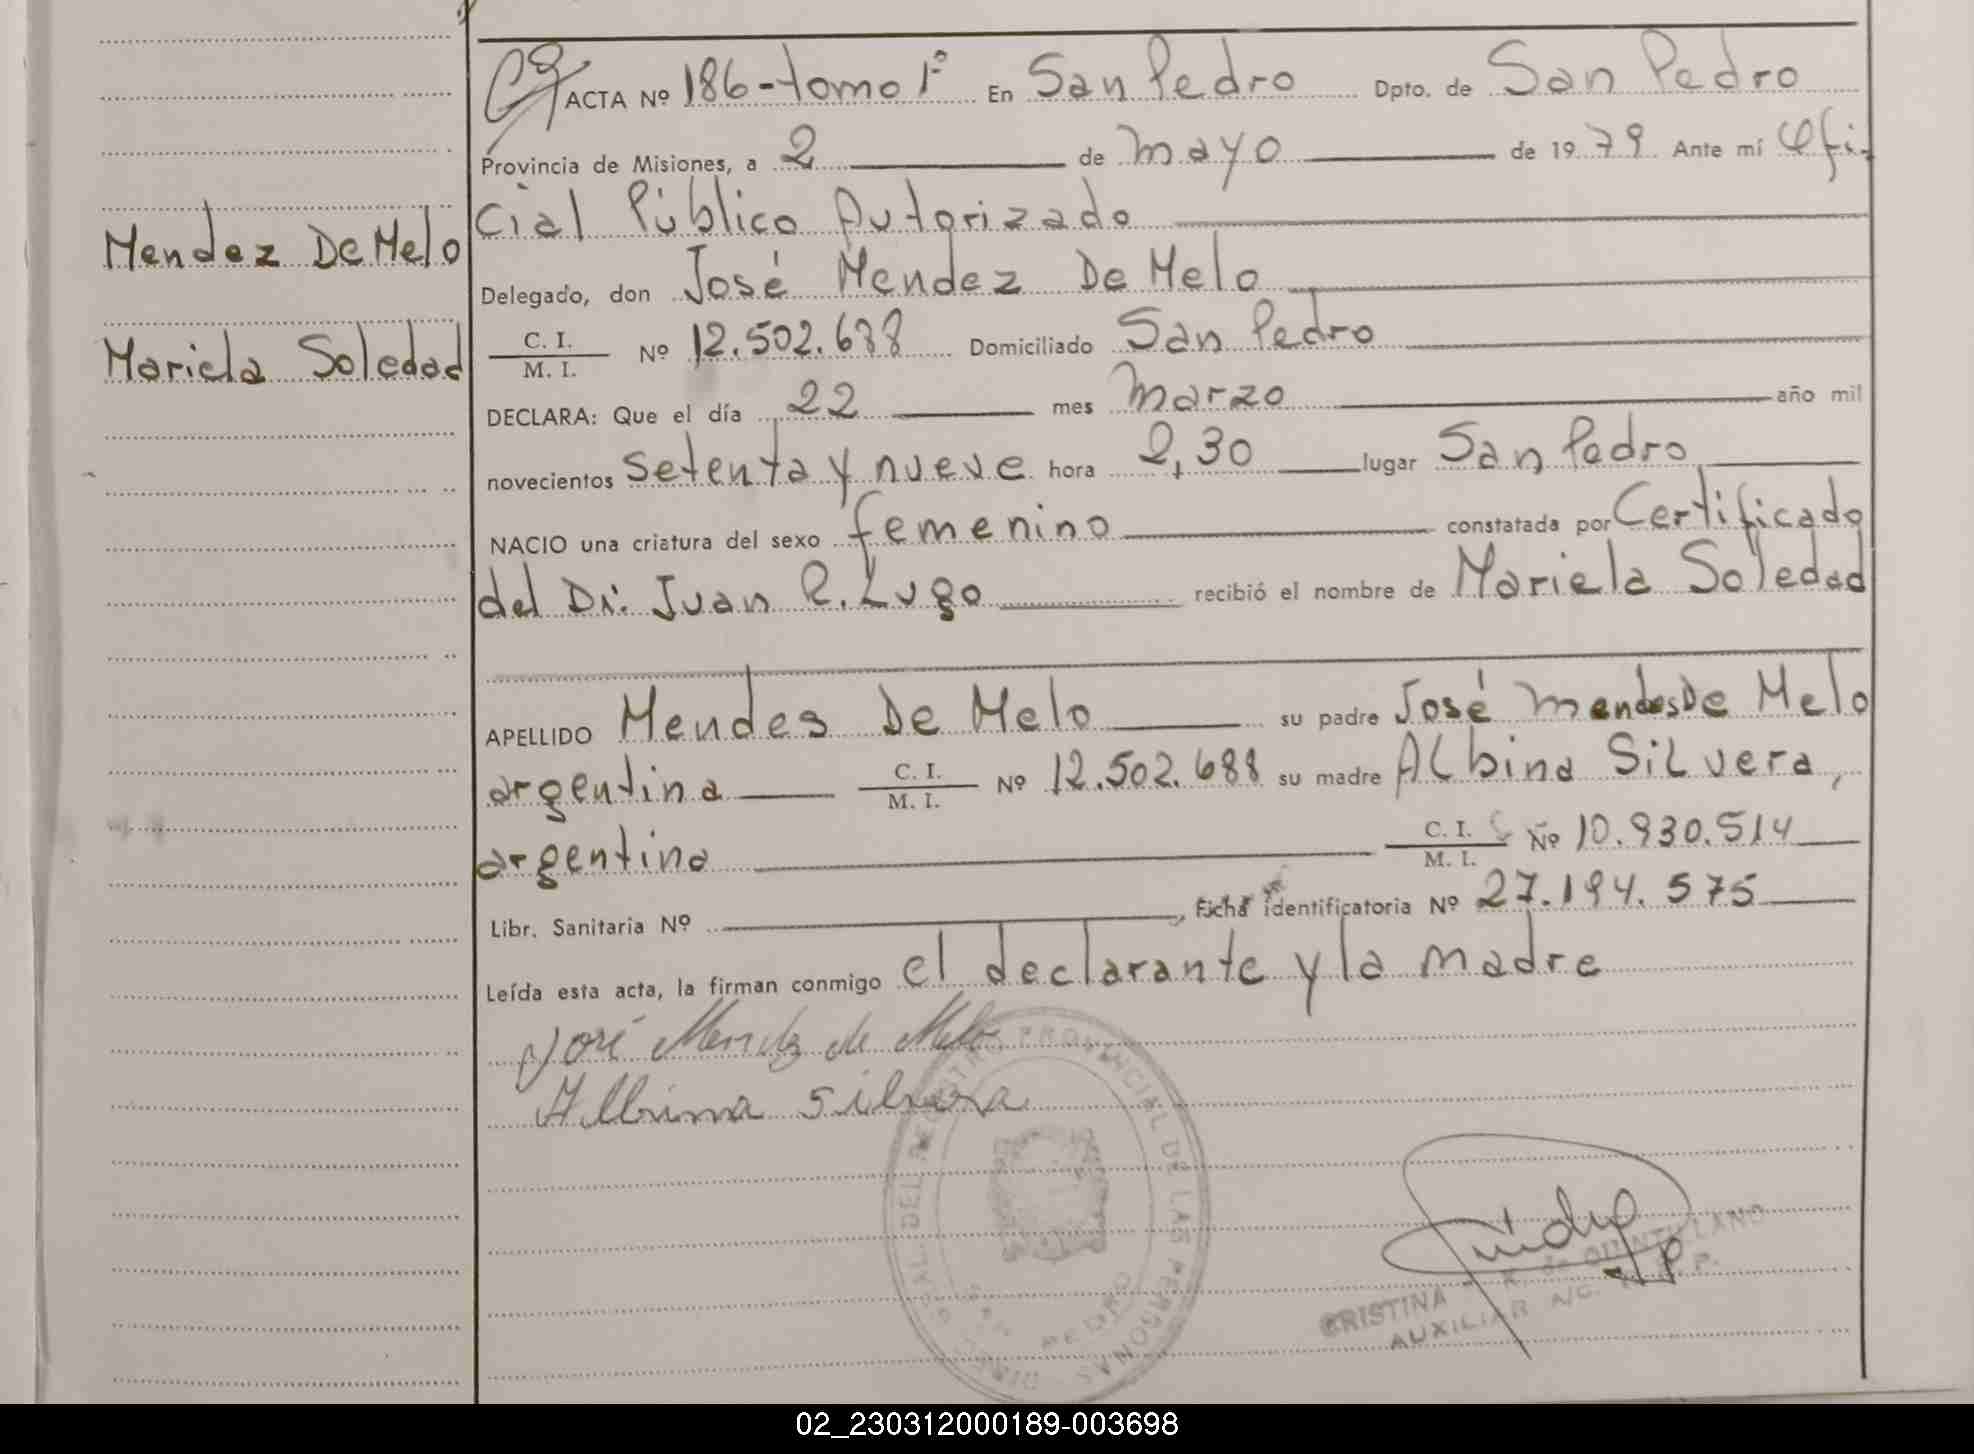 ACTA Nº 186-tomo 1º En San Pedro Dpto. de San Pedro
Provincia de Misiones, a 2 de mayo de 1979 Ante mí Ofi-
cial Público Autorizado
Mendez De Melo
Delegado, don José Mendez De Melo
C. I.
M. I.
Nº 12.502.688 Domiciliado San Pedro
Mariela Soledad
DECLARA: Que el día 22 mes Marzo año mil
novecientos setenta y nueve hora 2,30 lugar San Pedro
NACIO una criatura del sexo femenino constatada por Certificado
del Dr. Juan R. Lugo recibió el nombre de Mariela Soledad
APELLIDO Mendes De Melo su padre José Mendes De Melo
argentina C. I.
M. I.
Nº 12.502.688 su madre Albina Silvera,
argentina C. I.
M. I.
Nº 10.930.514
Libr. Sanitaria Nº , Ficha identificatoria Nº 27.194.575
Leída esta acta, la firman conmigo el declarante y la madre
José Mendez de Melo
Albina Silvera
REGISTRO PROVINCIAL DE LAS PERSONAS
SAN PEDRO
CRISTINA R. de QUINTILLANO
AUXILIAR
02_230312000189-003698